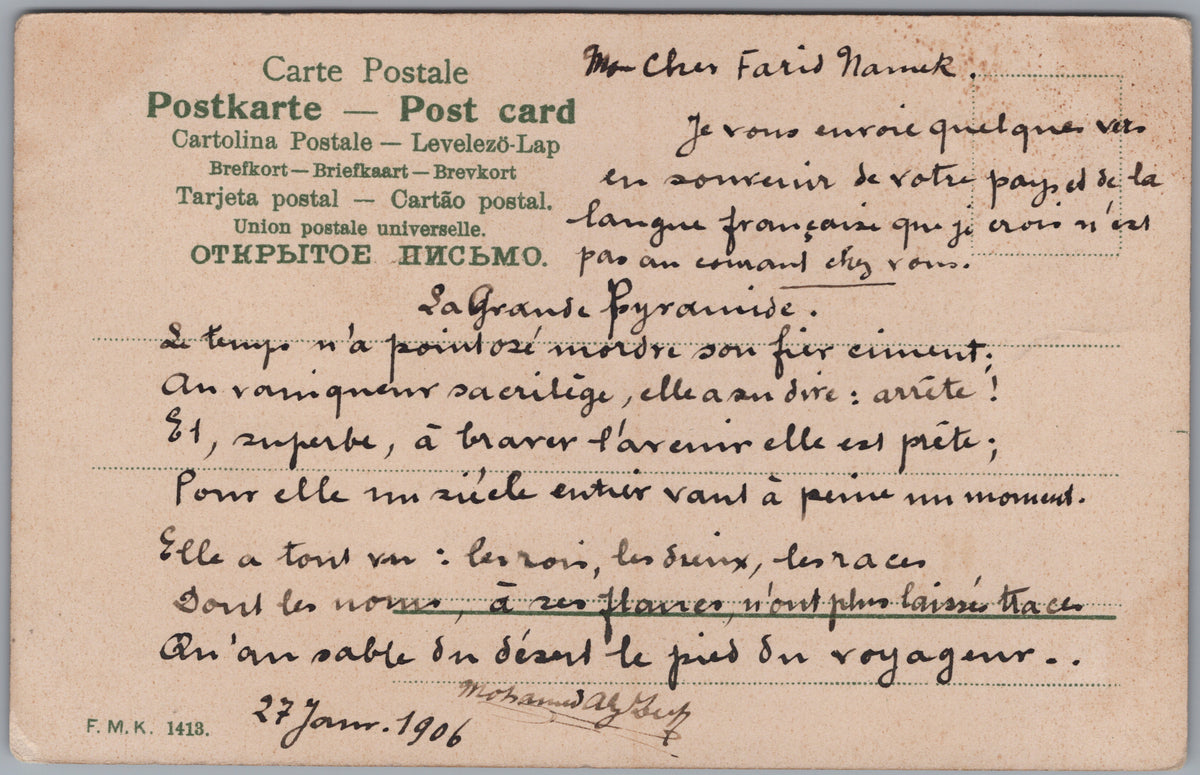 Carte Postale
Postkarte — Post card
Cartolina Postale — Levelező-Lap
Brefkort — Briefkaart — Brevkort
Tarjeta postal — Cartão postal.
Union postale universelle.
ОТКРЫТОЕ ПИСЬМО.
Mon Cher Farid Namek.
Je vous envoie quelques vers
en souvenir de votre pays et de la
langue française que je crois n'est
pas au courant chez vous.
La Grande Pyramide.
Le temps n'a point osé mordre son fier ciment;
Au vainqueur sacrilège, elle a su dire : arrête !
Et, superbe, à braver l'avenir elle est prête;
Pour elle un siècle entier vaut à peine un moment.
Elle a tout vu : les rois, les dieux, les races
Dont les noms, à ses flancs, n'ont plus laissé traces
Qu'au sable du désert le pied du voyageur..
Mohamed Aly
27 Janv. 1906
F. M. K. 1413.